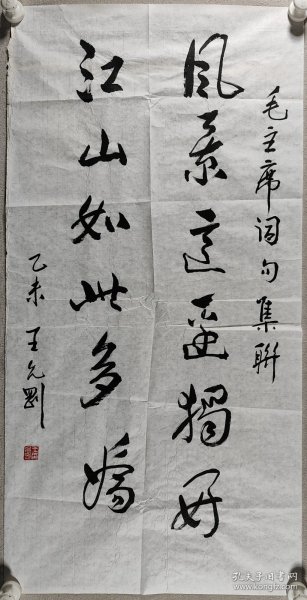 毛主席词句集联
风景这边独好
江山如此多娇
乙未 王允刚
孔夫子旧书网